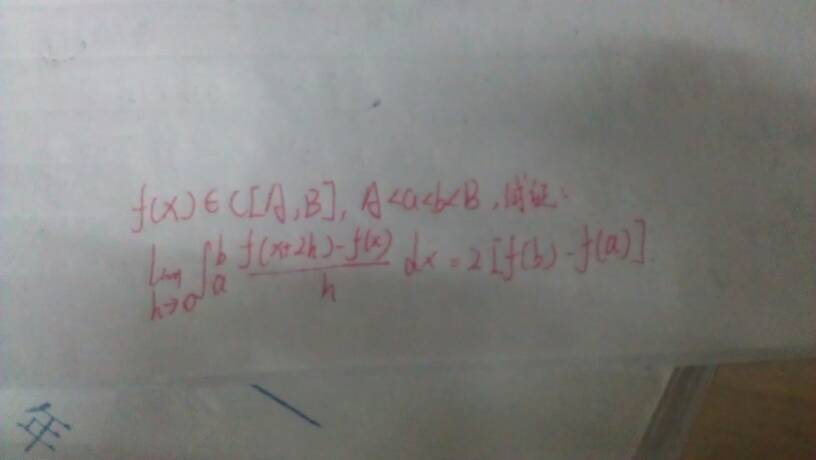 f(x)∈C[A,B], A<a<b<B, 试证:
lim h→0 ∫ₐᵇ (f(x+2h)-f(x))/h dx = 2[f(b)-f(a)].
年